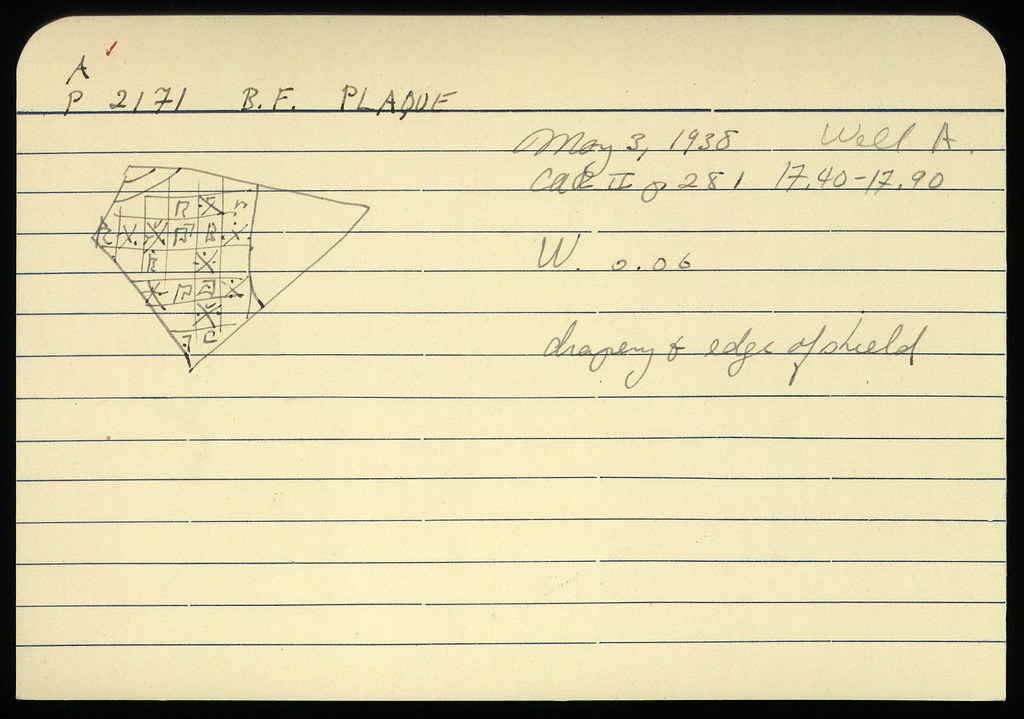 A
P 2171 B.F. PLAQUE
May 3, 1938 Well A.
Cat II p 281 17.40-17.90
W. 0.06
drapery & edge of shield